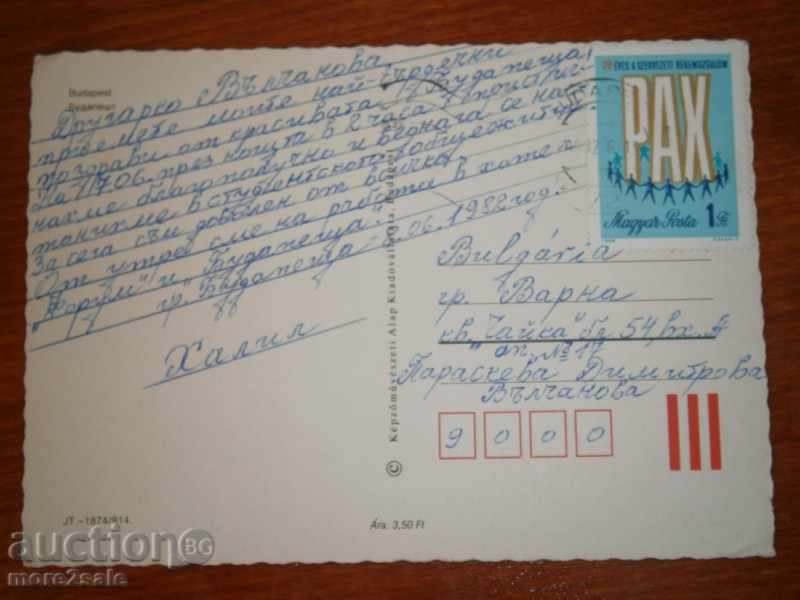 Budapest
Будапешт
Другарко Вълчанова,
приемете моите най-сърдечни
поздрави от красивата Будапеща!
На 11.06. през нощта в 2 часа
нахме благополучно и веднага се нас-
танихме в студентското общежитие.
За сега съм доволен от всичко.
От утре сме на работа в хотел
„Форум" и „Будапеща".
гр. Будапеща .06.1982 год.
Халил
JT - 1874/814
© Képzőművészeti Alap Kiadóvállalata, Budapest
Ára: 3,50 Ft
ÉVES A SZERVEZETT BÉKEMOZGALOM
PAX
Magyar Posta 1 Ft
Bulgária
гр. Варна
кв. „Чайка" бл. 54, вх. А
ап. № 17
Параскева Димитрова
Вълчанова
9 0 0 0
auction BG
more2sale